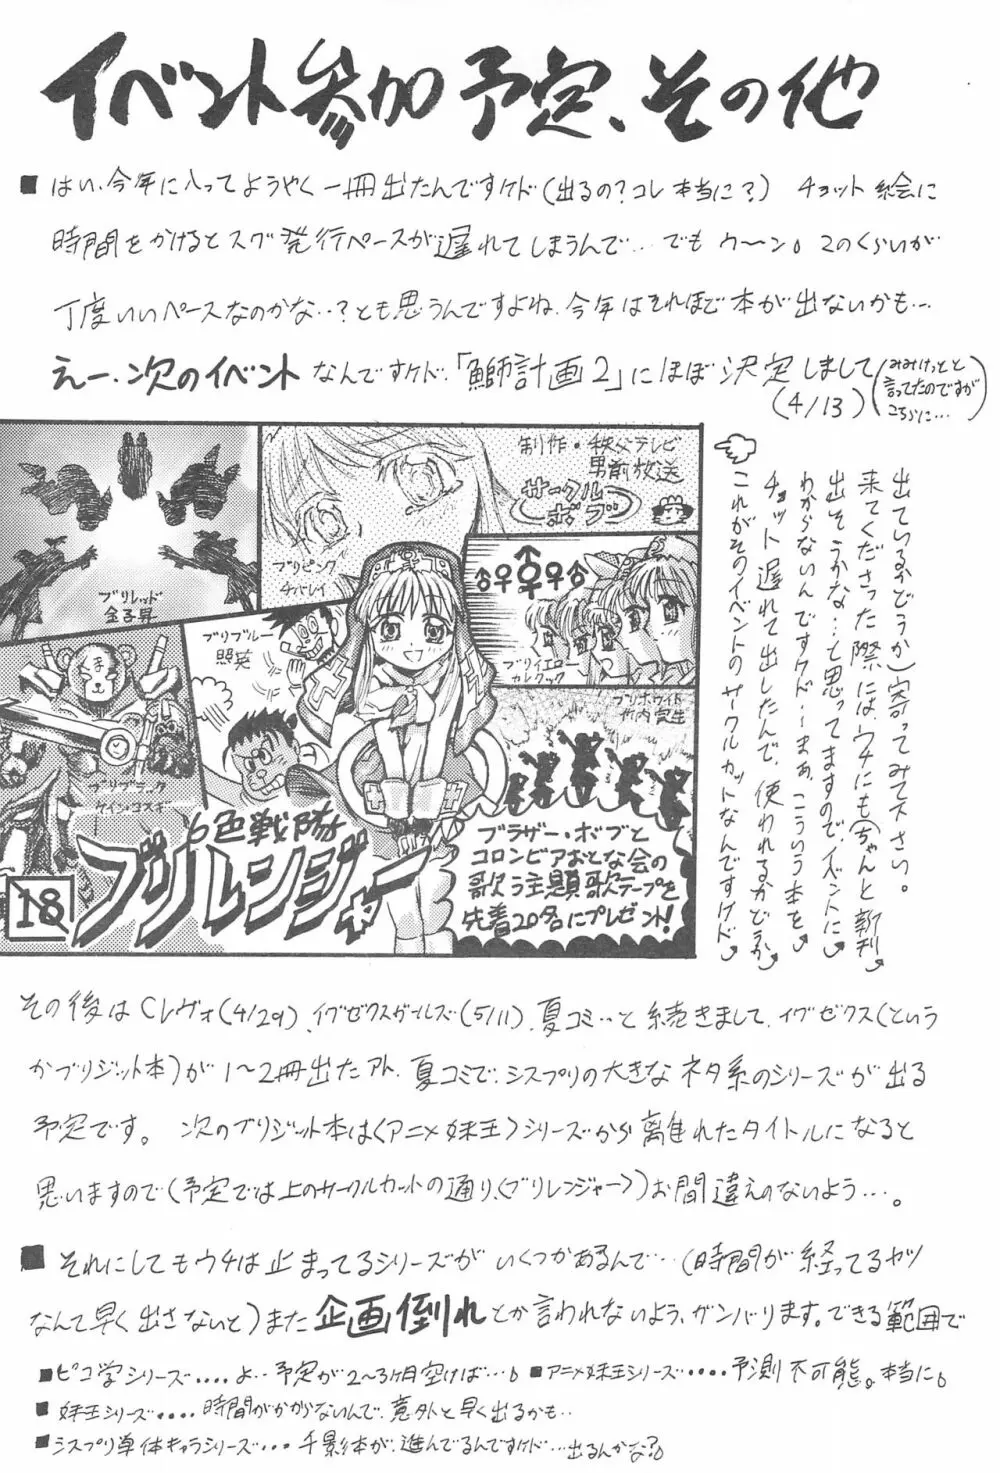 イベント参加予定、その他
■はい、今年に入ってようやく一冊出たんですけド(出るの?コレ本当に?) チョット絵に
時間をかけるとスグ発行ペースが遅れてしまうんで…でもウ〜ン。このくらいが
丁度いいペースなのかな…?とも思うんですよね、今年はそれほど本が出ないかも…
えー、次のイベントなんですけド、「鰤計画2」にほぼ決定しまして
(4/13)
(みみけっとと
言ってたのですが
こちらに…)
制作・秩父テレビ
男前放送
サークル
ボブ
ブリピンク
チバレイ
ブリレッド
金子昇
ブリブルー
照英
ブリイエロー
カレクック
ブリホワイト
竹内宝生
くま
ブリブラック
ケイン・コスギ
6色戦隊
ブリレンジャー
18
ブラザー・ボブと
コロンビアおとな会の
歌う主題歌テープを
先着20名にプレゼント!
これがそのイベントのサークルカットなんですけド
チョット遅れて出したんで、使われるかどうか
わからないんですけド…まあ、こういう本を
出そうかな…と思ってますので、イベントに
来てくださった際には、ウチにも(ちゃんと新刊
出ているかどうか)寄ってみて下さい。
その後はCレヴォ(4/29)、イグゼクスガールズ(5/11)、夏コミ…と続きまして、イグゼクス(という
かブリジット本)が1〜2冊出たアト、夏コミで、シスプリの大きなネタ系のシリーズが出る
予定です。 次のブリジット本は〈アニメ妹王〉シリーズから離れたタイトルになると
思いますので(予定では上のサークルカットの通り、〈ブリレンジャー〉)お間違えのないよう…。
■それにしてもウチは止まってるシリーズがいくつかあるんで…(時間が経ってるヤツ
なんて早く出さないと)また企画倒れとか言われないよう、ガンバります。できる範囲で
■ピコ学シリーズ....よ…予定が2〜3ヶ月空けば…。■アニメ妹王シリーズ....予測不可能。本当に。
■妹王シリーズ....時間がかからないんで、意外と早く出るかも…
■シスプリ単体キャラシリーズ...千影本が、進んでるんですけド…出るんかな?。